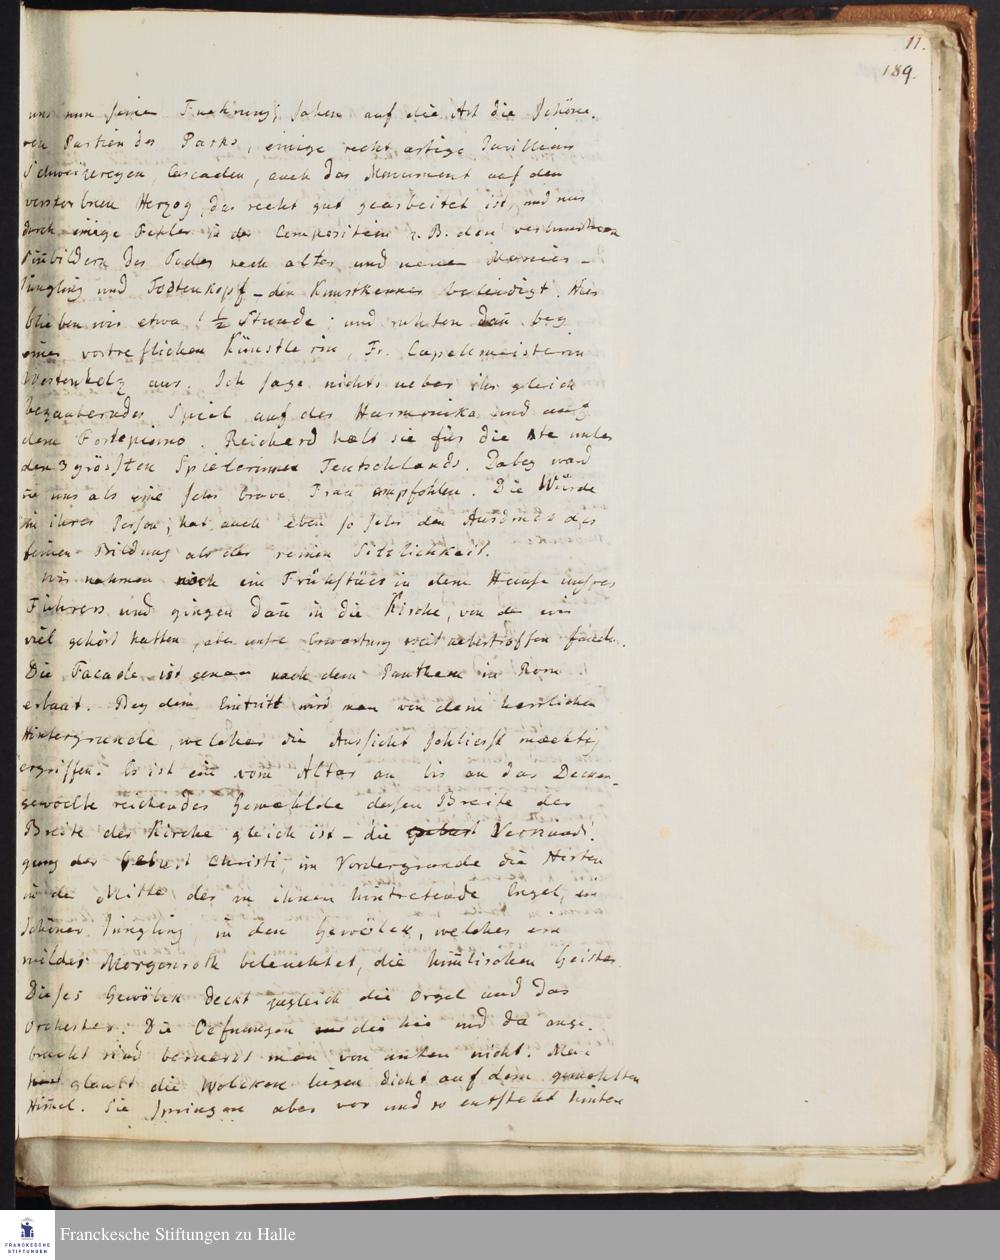 11.
189.
uns nun seiner Fuehrung, sahen auf die Art die schöne-
ren Partien des Parks, einige recht artige Pavillons
Schweizereyen, Cascaden, auch das Monument auf den
verstorbnen Herzog, das recht gut gearbeitet ist, und nur
durch einige Fehler in der Composition z. B. den verbundnen
Sinnbildern des Todes nach alter und neuer Manier –
Jüngling und Todtenkopf – den Kunstkenner beleidigt. Hier
blieben wir etwa 1 ½ Stunde; und ruhten dan̄ bey
einer vortreflichen Künstlerin, Fr. Capellmeisterin
Westenholz aus. Ich sage nichts ueber ihr gleich
bezauberndes Spiel auf der Harmonika und auf
dem Fortepiano. Reichard haelt sie für die 1te unter
den 3 grössten Spielerinnen Teutschlands. Dabey ward
sie uns als eine sehr brave Frau empfohlen. Die Würde
in ihrer Person, hat auch eben so sehr den Ausdruck der
feinen Bildung als der reinen Sittlichkeit.
Wir nahmen noch ein Frühstück in dem Hause unsres
Führers und gingen dan̄ in die Kirche, von der wir
viel gehört hatten, aber unsre Erwartung weit uebertroffen fanden.
Die Facade ist genau nach dem Pantheon in Rom
erbaut. Bey dem Eintritt wird man von dem herrlichen
Hintergrunde, welcher die Aussicht schliesst maechtig
ergriffen. Es ist ein vom Altar an bis an das Decken-
gewölbe reichendes Gemaehlde dessen Breite der
Breite der Kirche gleich ist – die Geburt Verkündi-
gung der Geburt Christi, im Vordergrunde die Hirten
in der Mitte der zu ihnen hintretende Engel, ein
schöner Jüngling, in den Gewölck, welches ein
mildes Morgenroth beleuchtet, die him̄lischen Geister.
Dieses Gewölck deckt zugleich die Orgel und das
Orchester. Die Oefnungen die hie und da ange-
bracht sind bemerkt man von unten nicht. Man
glaubt die Wolcken liegen dicht auf dem gemahlten
Him̄el. Sie springen aber vor und so entsteht hinten
Franckesche Stiftungen zu Halle
FRANCKESCHE
STIFTUNGEN